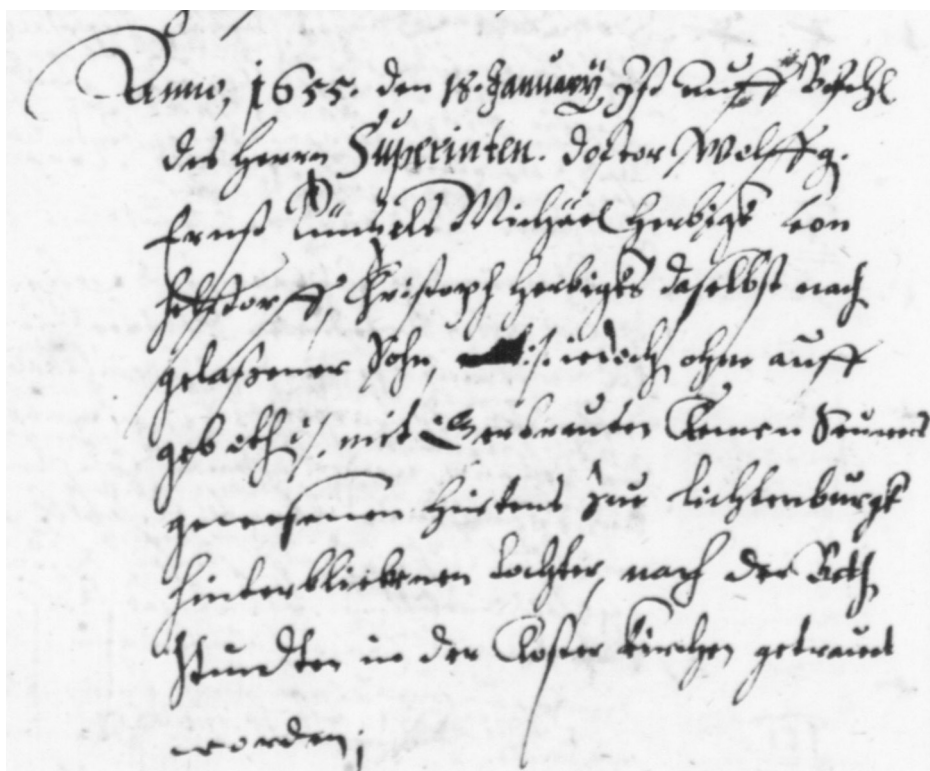 Anno, 1655. den 18. January Ist auff Befehl
des Herrn Superinten. doctor Wolffg.
Ernst Michäel Herbigk von
Christoph Herbigks daselbst nach
gelaßener Sohn, iedoch ohne auff
geboth mit
gewesenen Hirtens zue Lichtenburgk
hinterbliebenen Tochter, nach der Beth
stundten in der Closter Kirchen getrauet
worden;